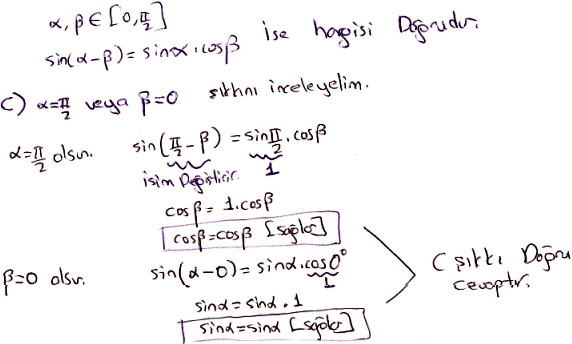 α, β ∈ [0, π/2]
sin(α-β) = sinα.cosβ ise hangisi Doğrudur.
C) α=π/2 veya β=0 şıkkını inceleyelim.
α=π/2 olsun. sin(π/2 - β) = sin π/2 . cosβ
1
isim Değiştirir.
cosβ = 1.cosβ
cosβ=cosβ [sağlar]
β=0 olsun. sin(α-0) = sinα.cos0°
1
sinα = sinα . 1
sinα=sinα [sağlar]
C şıkkı Doğru
cevaptır.